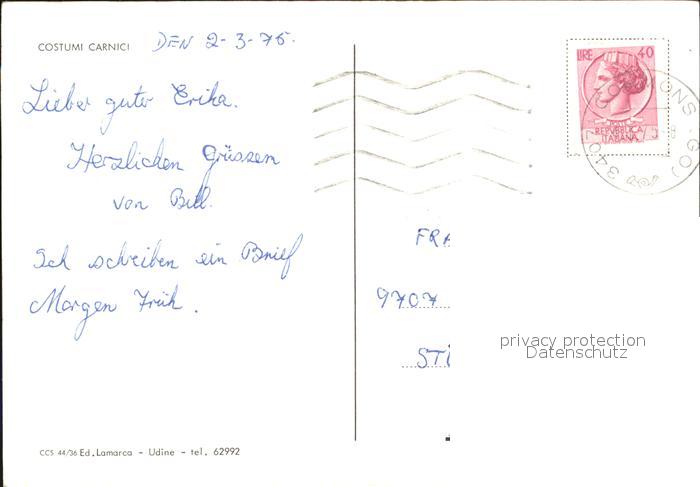 COSTUMI CARNICI DEN 2-3-75.
Lieber guter Erika.
Herzlichen Grüssen
von Bill.
Ich schreiben ein Brief
Morgen Früh.
CCS 44/36 Ed. Lamarca - Udine - tel. 62992
LIRE 40
REPUBBLICA
ITALIANA
FRA
9707
STI
privacy protection
Datenschutz